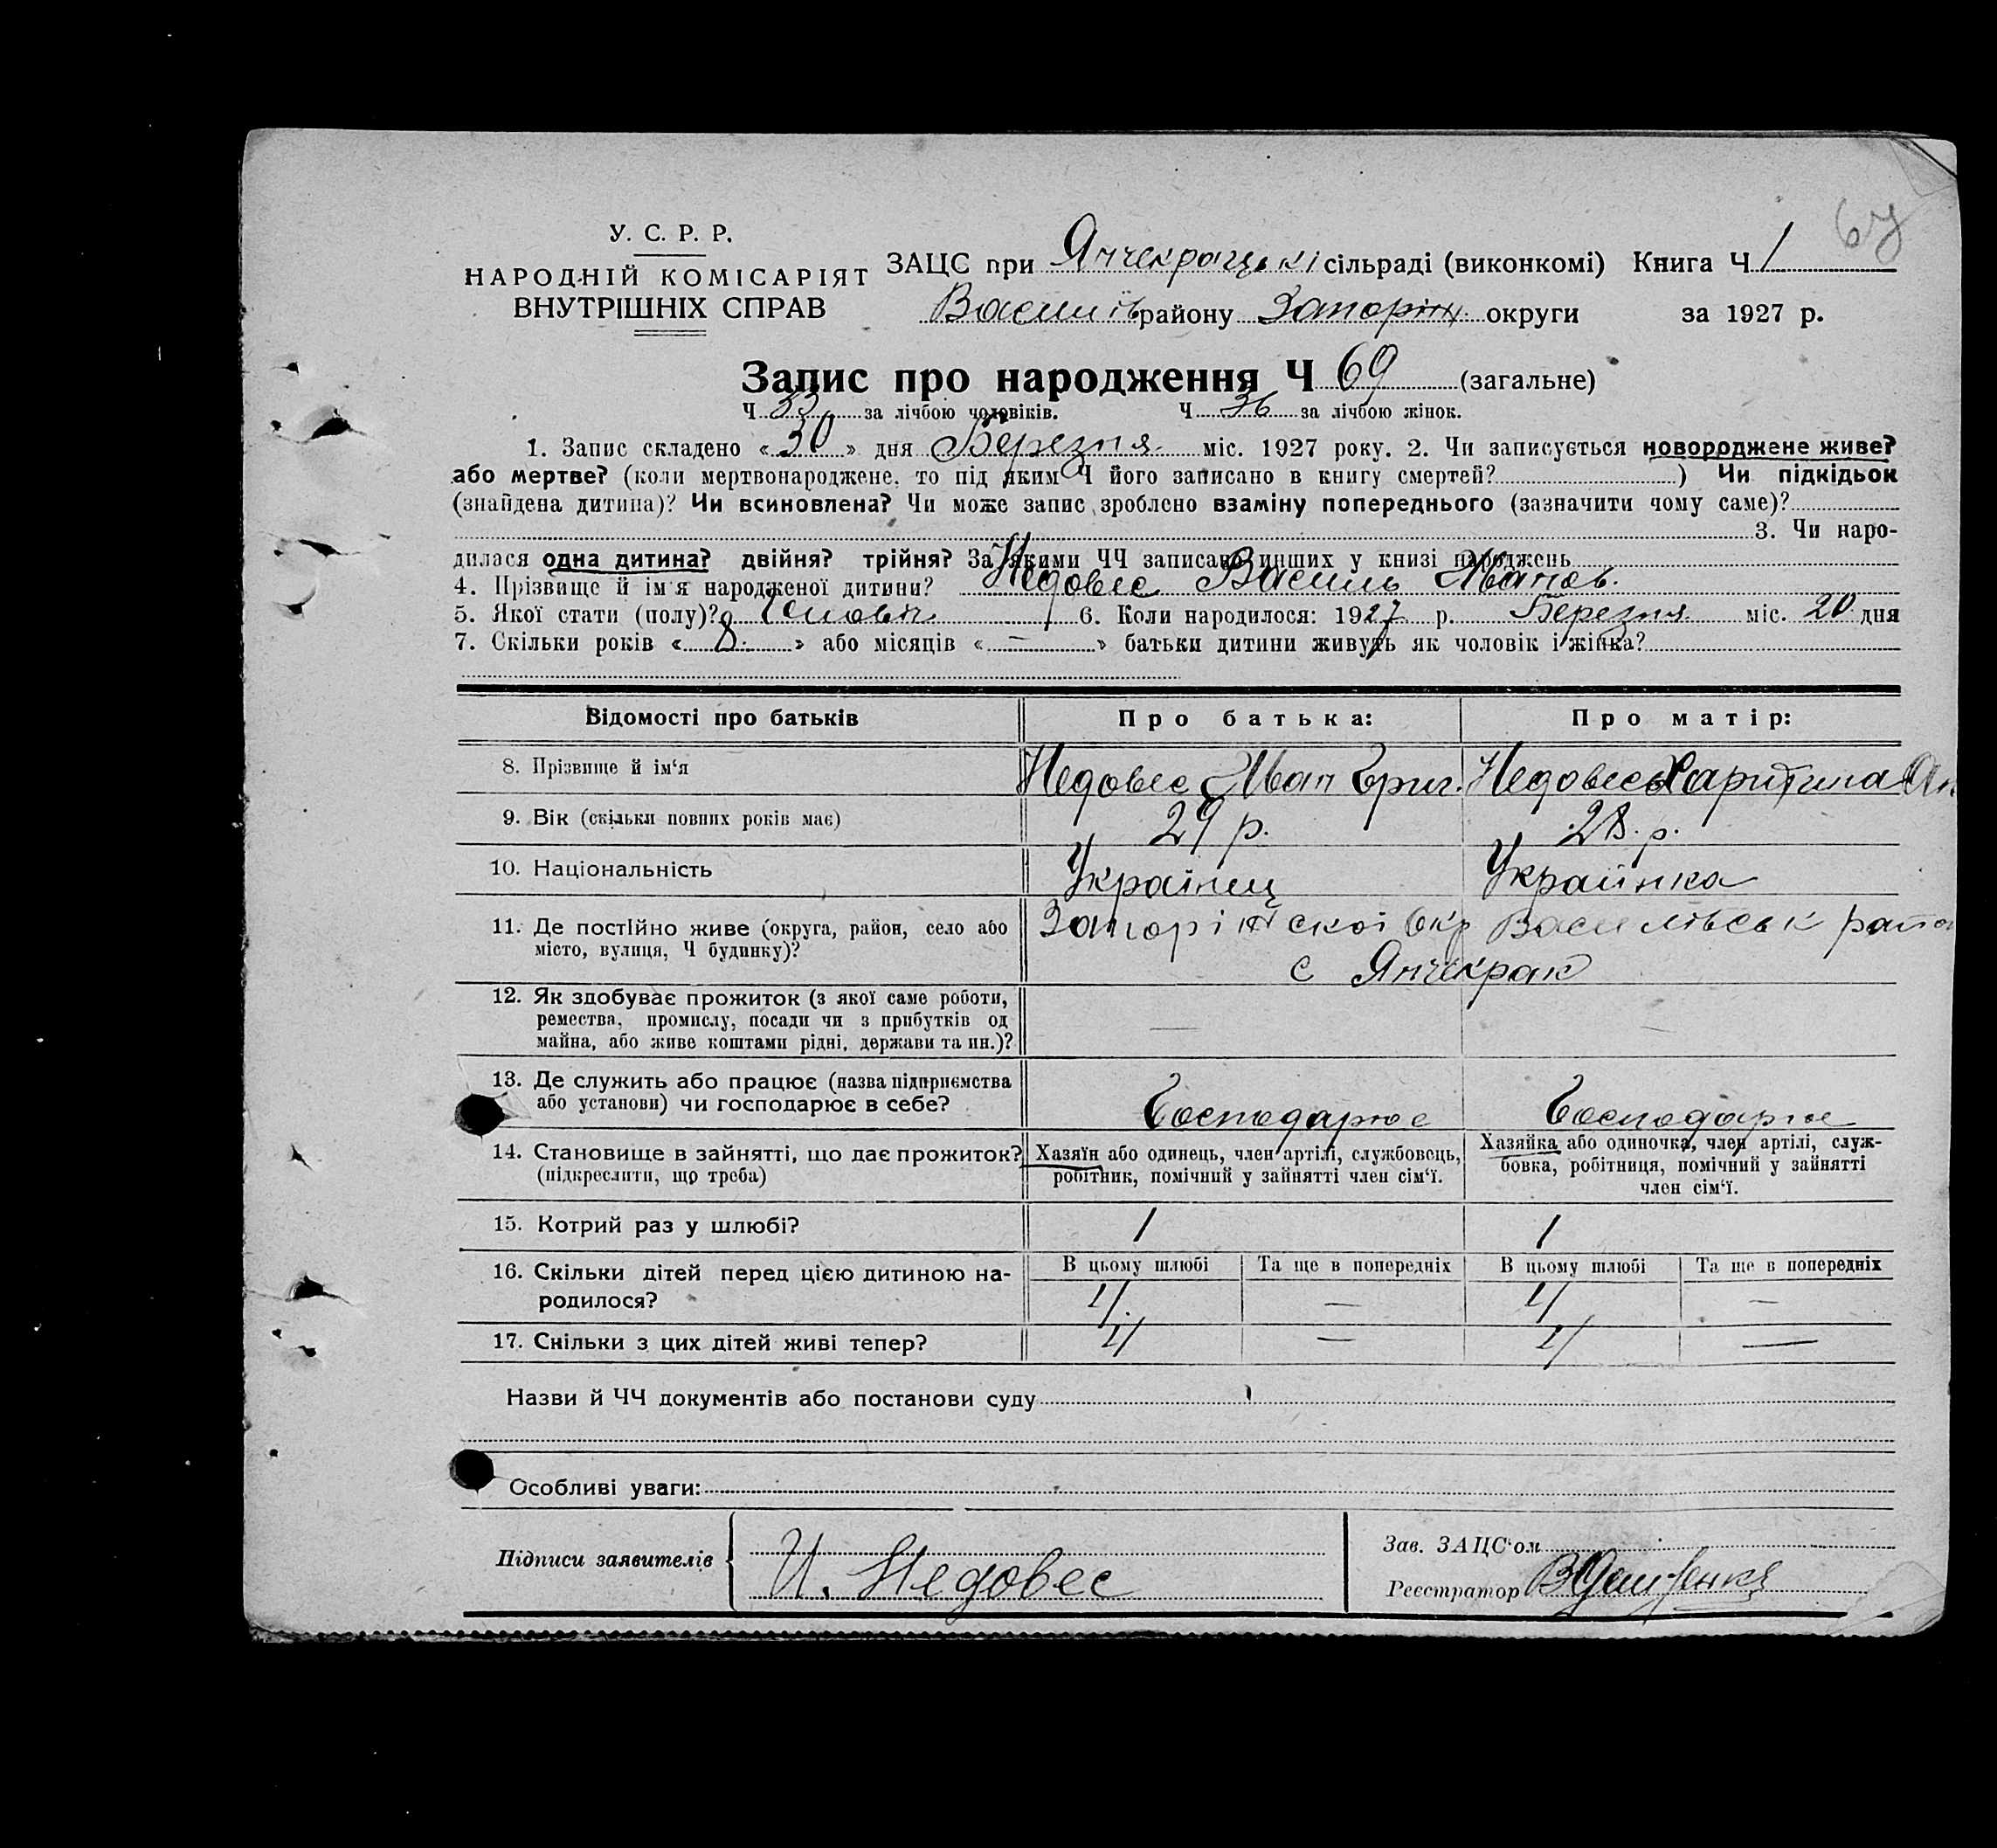 67
У. С. Р. Р.
НАРОДНІЙ КОМІСАРІЯТ
ВНУТРІШНІХ СПРАВ
ЗАЦС при Янчекрацькі сільраді (виконкомі) Книга Ч 1
Василів району Запоріж. округи за 1927 р.
Запис про народження Ч 69 (загальне)
Ч 33 за лічбою чоловіків. Ч 36 за лічбою жінок.
1. Запис складено «30» дня Березня міс. 1927 року. 2. Чи записується новороджене живе?
або мертве? (коли мертвонароджене, то під яким Ч його записано в книгу смертей? ) Чи підкідьок
(знайдена дитина)? Чи всиновлена? Чи може запис зроблено взаміну попереднього (зазначити чому саме)?
3. Чи наро-
дилася одна дитина? двійня? трійня? За якими ЧЧ записано инших у книзі народжень
4. Прізвище й ім'я народженої дитини? Недовес Василь Иванов.
5. Якої стати (полу)? Чоловіч 6. Коли народилося: 1927 р. Березня міс. 20 дня
7. Скільки років «8.» або місяців «—» батьки дитини живуть як чоловік і жінка?
Відомості про батьків Про батька: Про матір:
8. Прізвище й ім'я Недовес Иван Григ. Недовес Харитина Ан
9. Вік (скільки повних років має) 29 р. 28. р.
10. Національність Украінец Украинка
11. Де постійно живе (округа, район, село або Запоріжскоі Окр Василівськ райо
місто, вулиця, Ч будинку)? с Янчекрак
12. Як здобуває прожиток (з якої саме роботи,
ремества, промислу, посади чи з прибутків од — —
майна, або живе коштами рідні, держави та ин.)?
13. Де служить або працює (назва підприємства
або установи) чи господарює в себе? Господарює Господарює
14. Становище в зайнятті, що дає прожиток? Хазяїн або одинець, член артілі, службовець, Хазяйка або одиночка, член артілі, служ-
(підкреслити, що треба) робітник, помічний у зайнятті член сім'ї. бовка, робітниця, помічний у зайнятті
член сім'ї.
15. Котрий раз у шлюбі? 1 1
16. Скільки дітей перед цією дитиною на- В цьому шлюбі Та ще в попередніх В цьому шлюбі Та ще в попередніх
родилося? — —
17. Скільки з цих дітей живі тепер? — —
Назви й ЧЧ документів або постанови суду
Особливі уваги:
Підписи заявителів И. Недовес
Зав. ЗАЦС'ом
Реєстратор